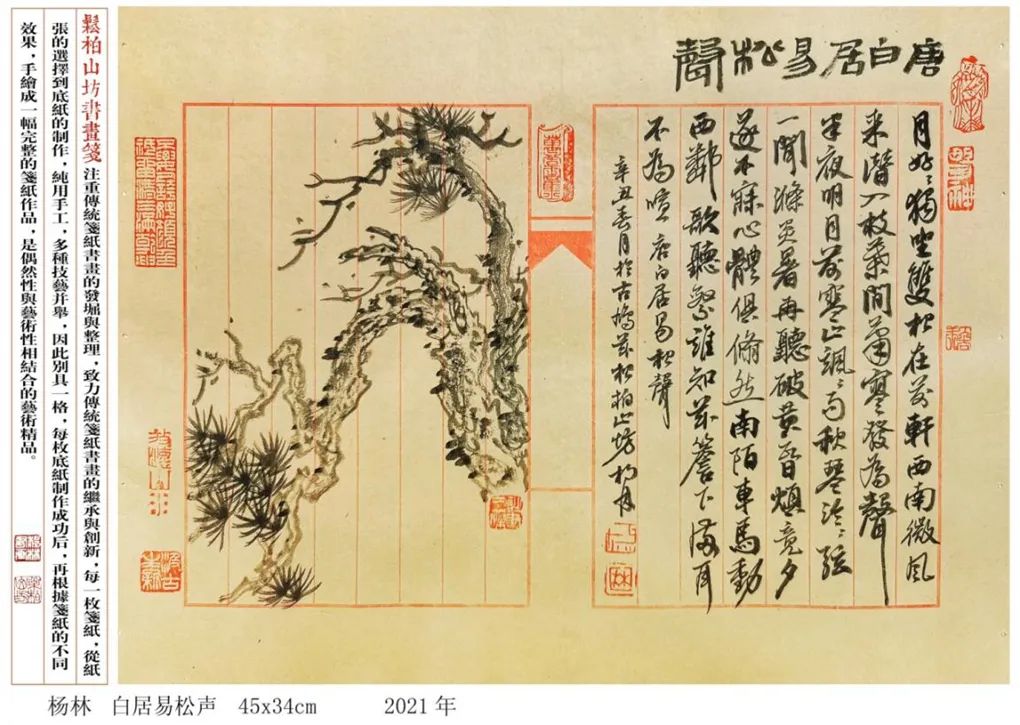 唐白居易松聲
月好〻獨坐雙松在前軒西南微風
来潛入枝葉間蕭寥發為聲
半夜明月前寒山颯〻雨秋琴泠〻絃
一聞滌炎暑再聽破黄昏煩竟夕
遂不寐心體俱翛然南陌車馬動
西鄰歌聽繁誰知茲簷下滿耳
不為喧 唐白居易松聲
辛丑春月於古鳩茲松柏山坊
鬆柏山坊書畫箋 注重傳統箋紙書畫的發堀與整理，致力傳統箋紙書畫的繼承與創新，每一枚箋紙，從紙
張的選擇到底紙的制作，純用手工，多種技藝并舉，因此別具一格，每枚底紙制作成功后，再根據箋紙的不同
效果，手繪成一幅完整的箋紙作品，是偶然性與藝術性相結合的藝術精品。
杨林 白居易松声 45x34cm 2021年